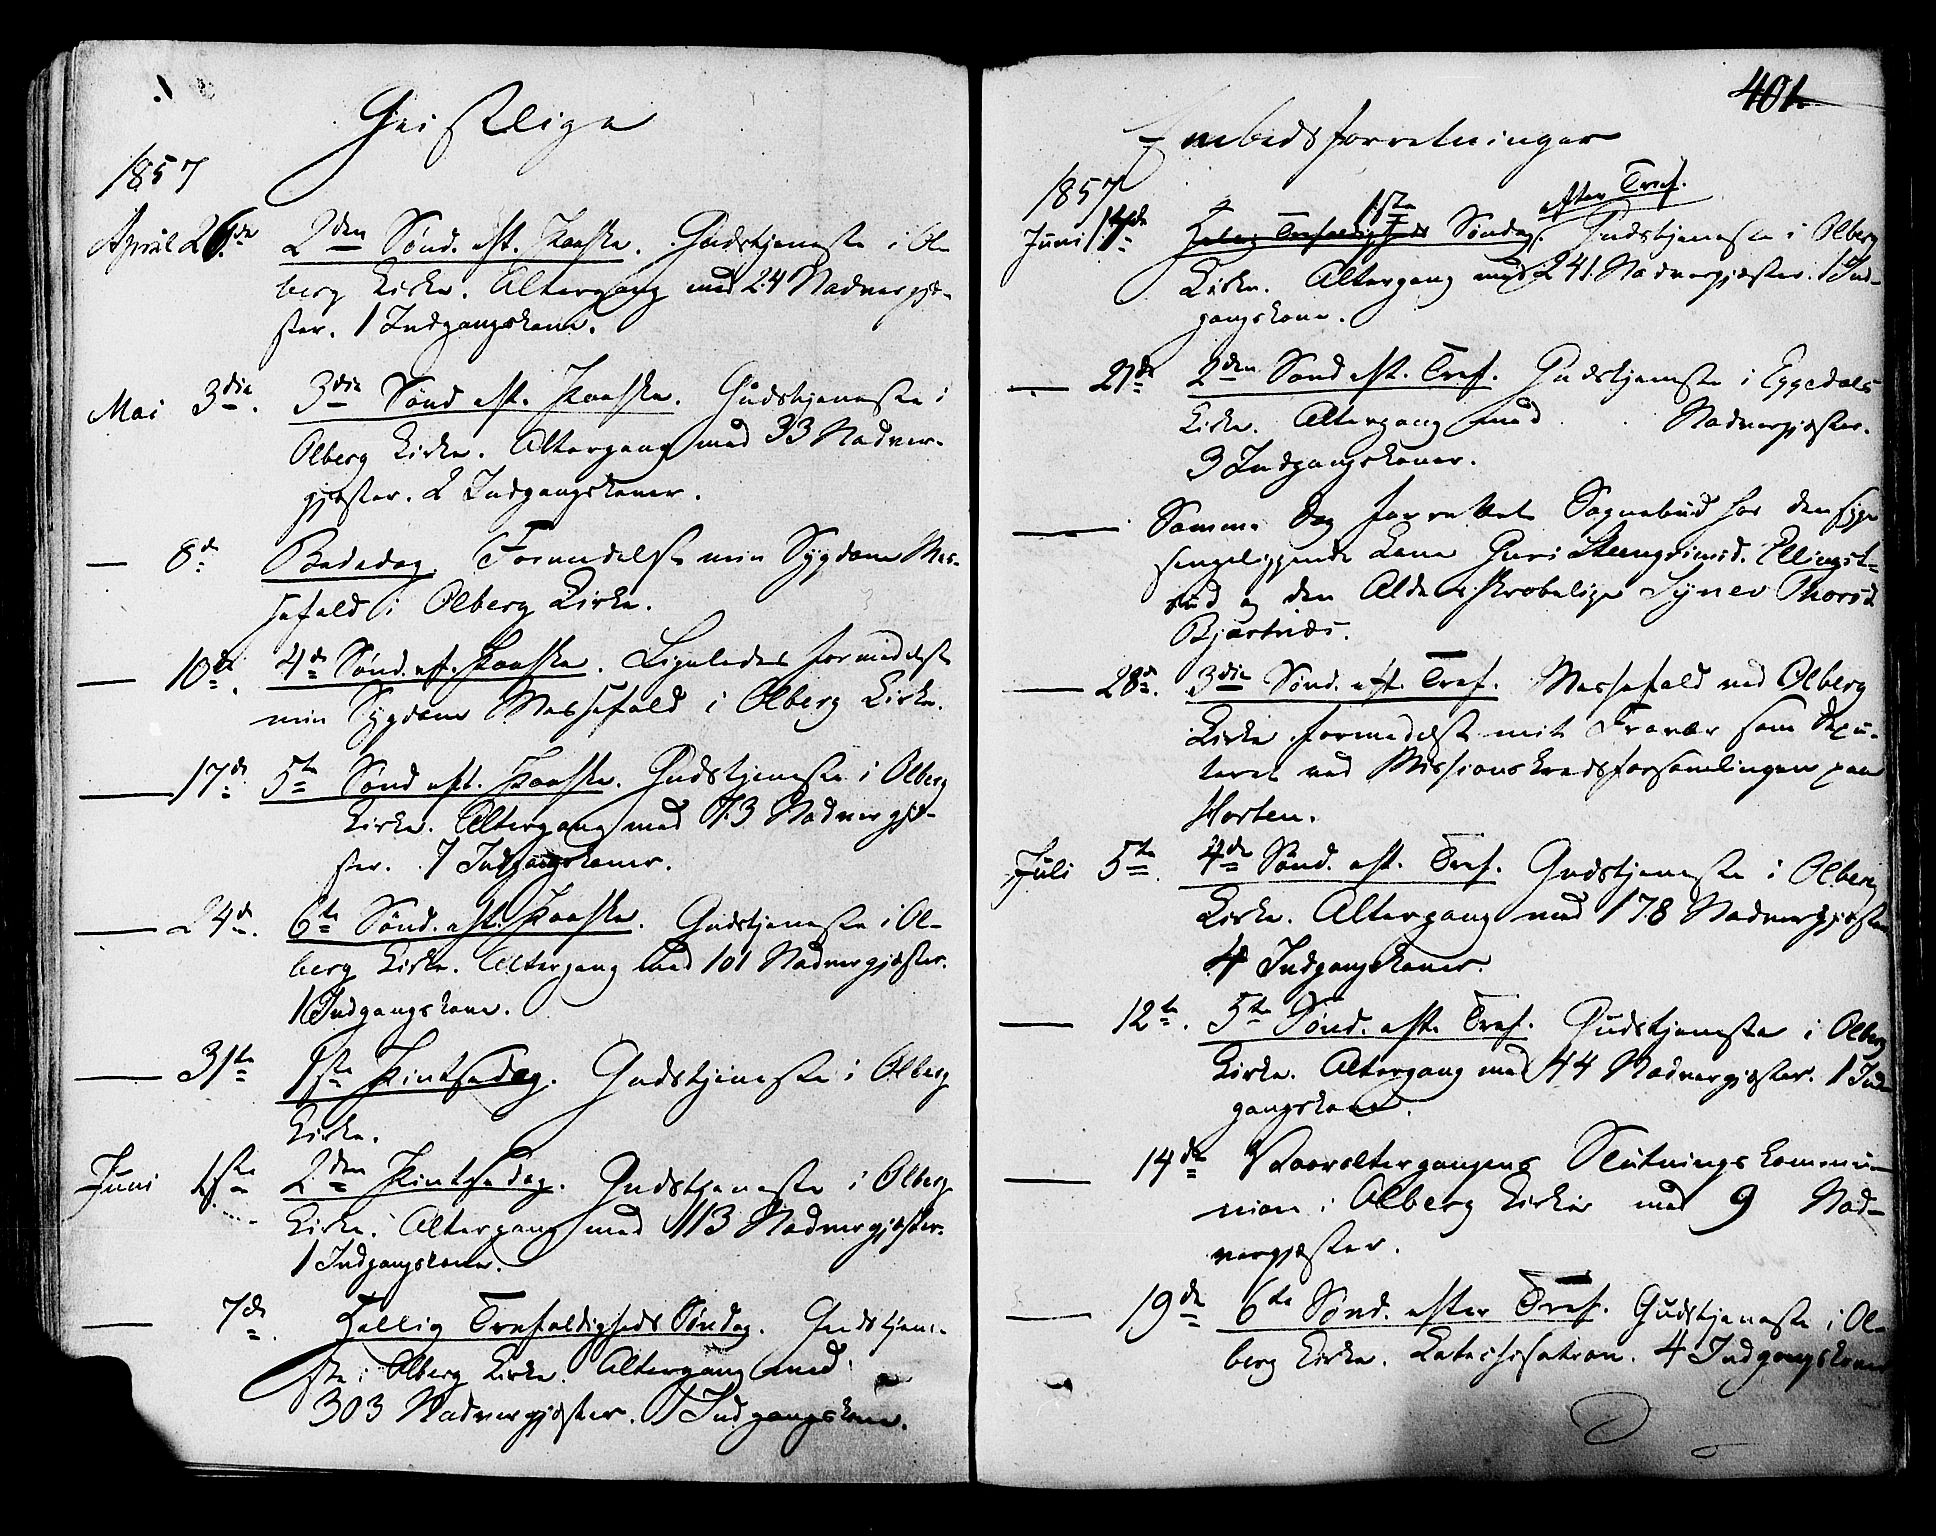 Geistlige
1857
April 26de 2den Sønd. eft. Paaske. Gudstjeneste i Ol-
berg Kirke. Altergang med 24 Nadvergjæ-
ster. 1 Indgangskone.
Mai 3die. 3die Sønd eft. Paaske. Gudstjeneste i
Olberg Kirke. Altergang med 33 Nadver-
gjæster. 2 Indgangskoner.
— 8de Bededag. Formedelst min Sygdom Mes-
sefald i Olberg Kirke.
— 10de. 4de Sønd. eft. Paaske. Ligeledes formedelst
min Sygdom Messefald i Olberg Kirke.
— 17de 5te Sønd eft. Paaske. Gudstjeneste i Olberg
Kirke. Altergang med 73 Nadvergjæ-
ster. 7 Indgangskoner.
— 24de. 6te Sønd. eft. Paaske. Gudstjeneste i Ol-
berg Kirke. Altergang med 101 Nadvergjæster.
1 Indgangskone.
— 31te 1ste Pintsedag. Gudstjeneste i Olberg
Kirke.
Juni 1ste 2den Pintsedag. Gudstjeneste i Olberg
Kirke. Altergang med 113 Nadvergjæster.
1 Indgangskone.
— 7de. Hellig Trefoldigheds Søndag. Gudstjene-
ste i Olberg Kirke. Altergang med
303 Nadvergjæster. 1 Indgangskone.
401
Embedsforretninger
1857
1ste efter Tref.
Juni 14de Hellig Trefoldigheds Søndag. Gudstjeneste i Olberg
Kirke. Altergang med 241 Nadvergjæster. 1 Ind-
gangskone.
— 21de 2den Sønd eft. Tref. Gudstjeneste i Eggedals
Kirke. Altergang med Nadvergjæster.
3 Indgangskoner.
— Samme Dag forrettet Sognebud hos den syge
sengeliggende Kone Guri Steengrimsd. Ellingst-
rud og den Alderskrøbelige Synev Thorsd
Bjørtnæs.
— 28de. 3die Sønd. eft. Tref. Messefald ved Olberg
Kirke formedelst mit Fravær som Depu-
teret ved Missionskredsforsamlingen paa
Horten.
Juli 5te. 4de Sønd. eft. Tref. Gudstjeneste i Olberg
Kirke. Altergang med 178 Nadvergjæster
4 Indgangskoner.
— 12te. 5te Sønd. eft. Tref. Gudstjeneste i Olberg
Kirke. Altergang med 44 Nadvergjæster. 1 Ind
gangskone.
— 14de Vaaraltergangens Slutningskommu-
nion i Olberg Kirke med 9 Nad-
vergjæster.
— 19de 6te Sønd. efter Tref. Gudstjeneste i Ol-
berg Kirke. Katechisation. 4 Indgangskoner